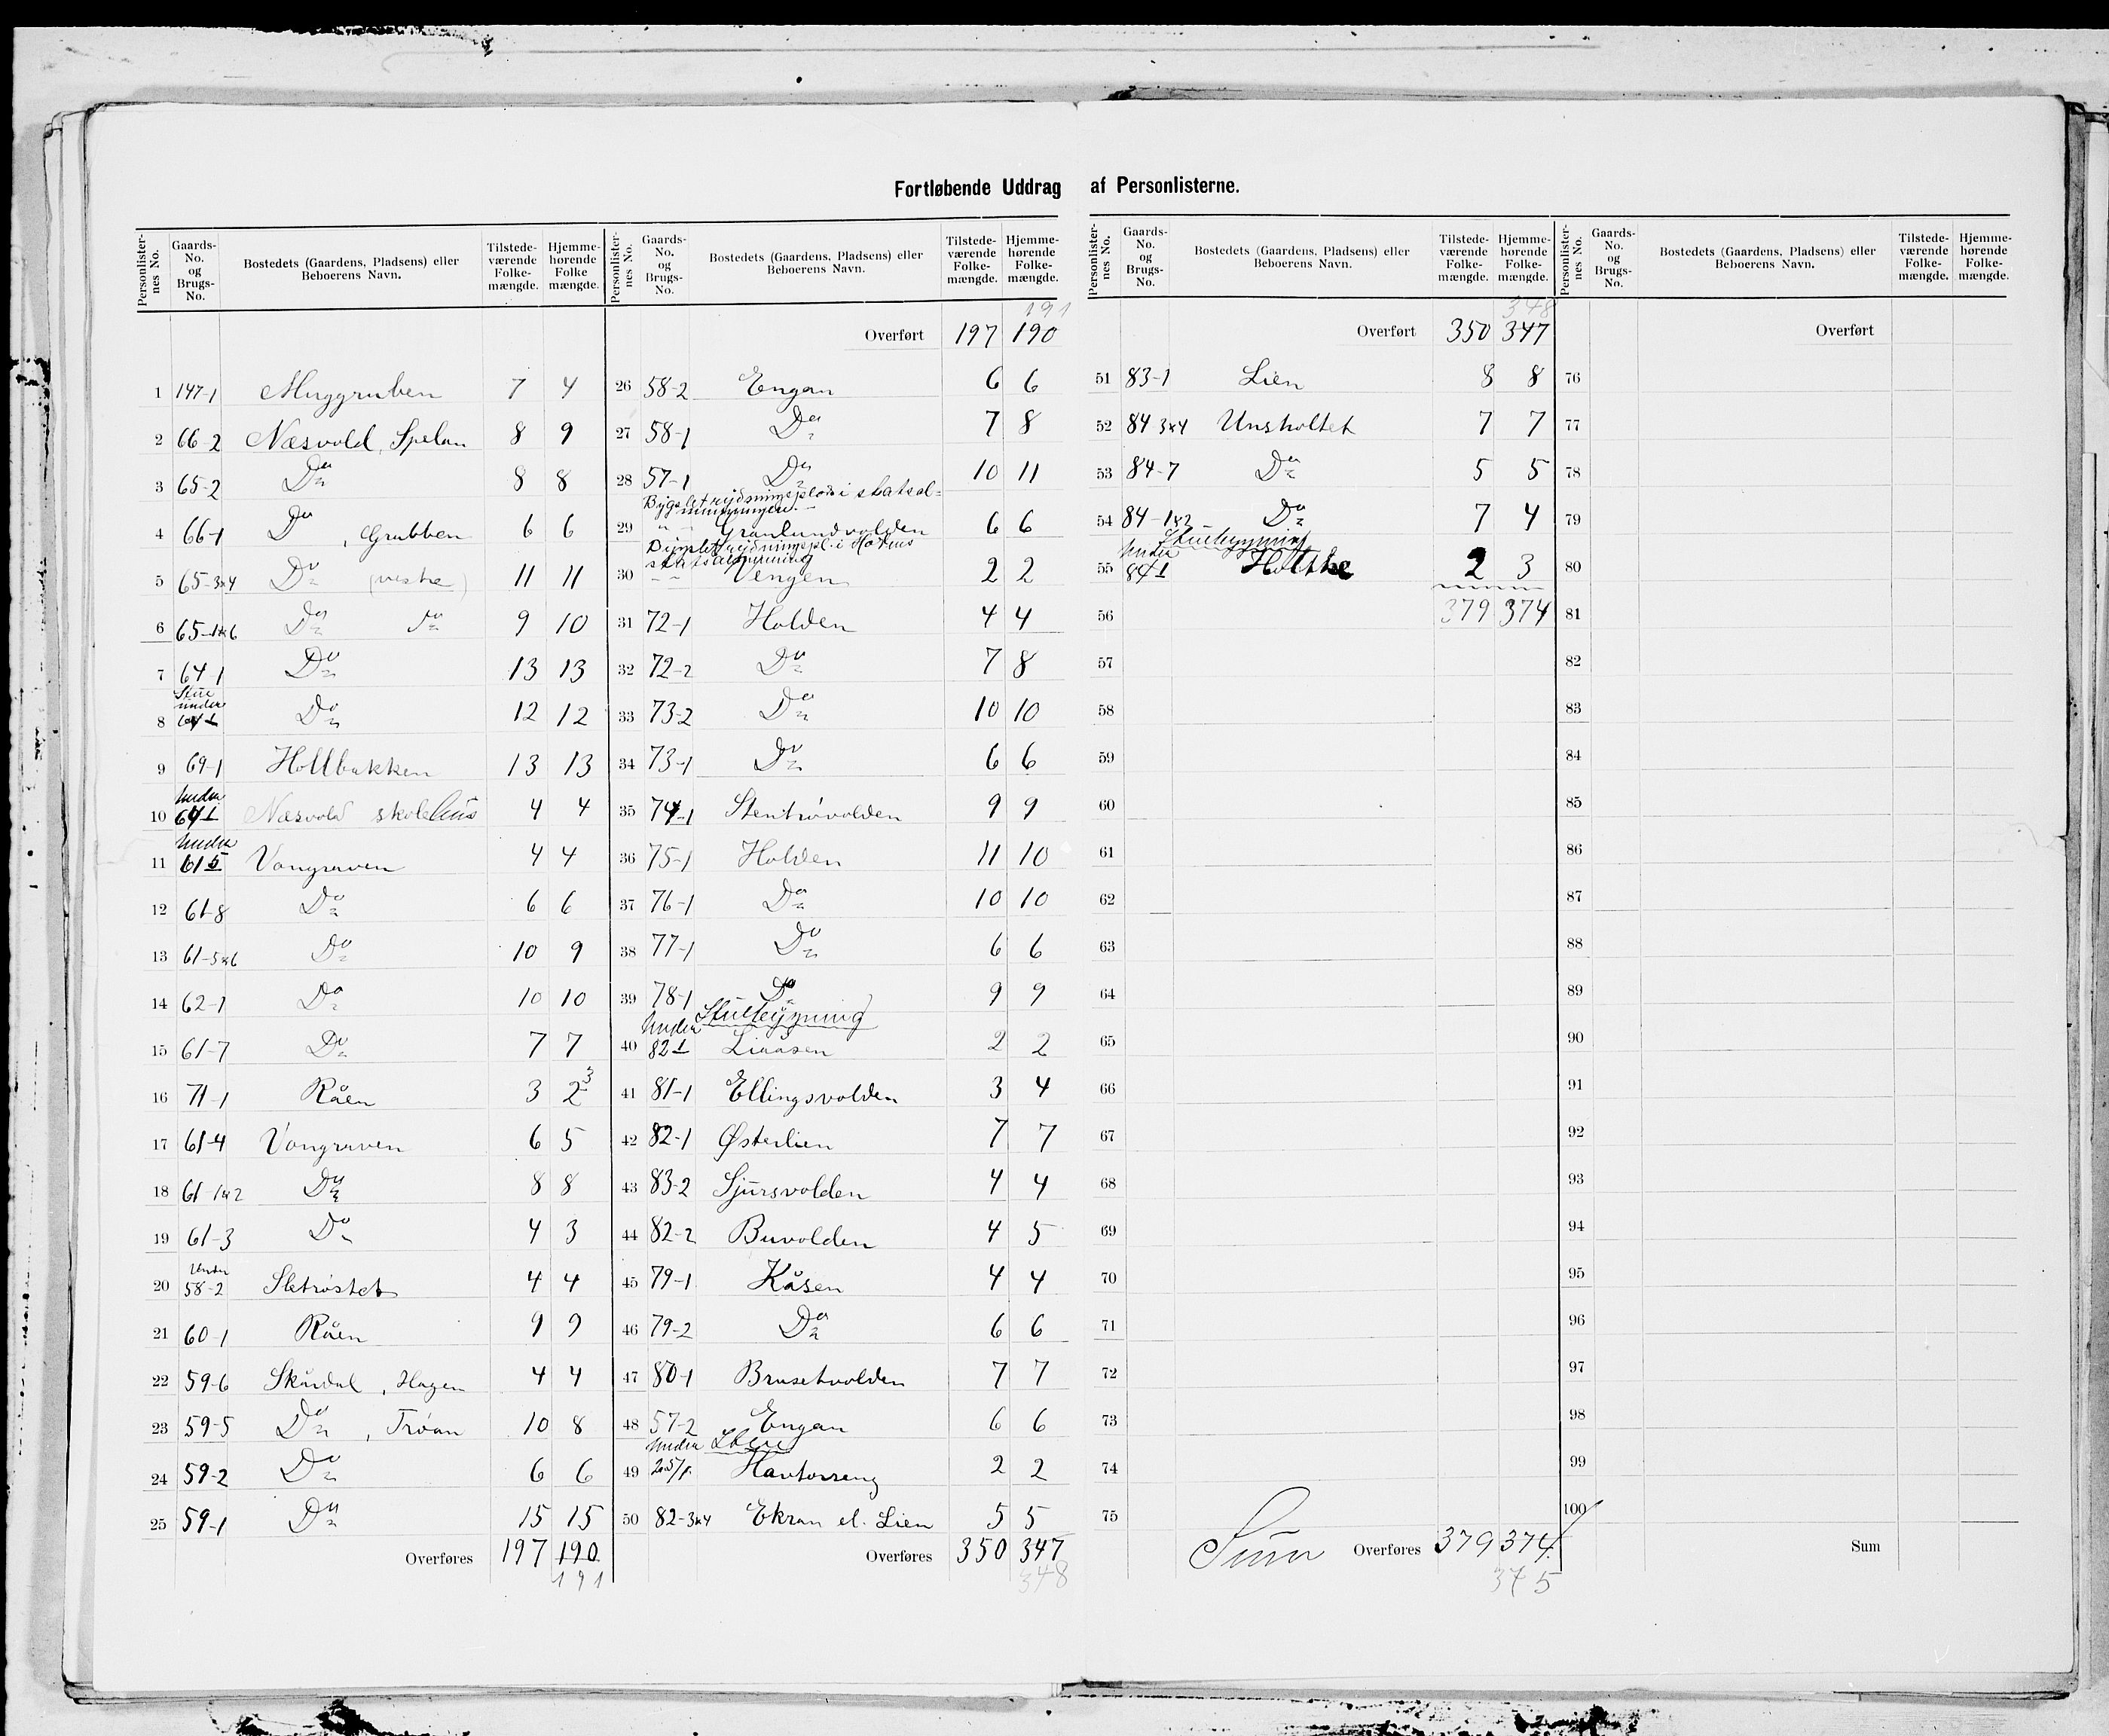 Fortløbende Uddrag af Personlisterne.
Personlister-nes No. Gaards-No. og Brugs-No. Bostedets (Gaardens, Pladsens) eller Beboerens Navn. Tilstede-værende Folke-mængde. Hjemme-hørende Folke mængde.
1 147-1 Muggruben 7 4
2 66-2 Næsvold, Spelan 8 9
3 65-2 Do 8 8
4 66-1 Do, Grubben 6 6
5 65-3&4 Do (vestre) 11 11
6 65-1&6 Do do 9 10
7 64-1 Do 13 13
8 Stue under 64-1 Do 12 12
9 69-1 Hollbakken 13 13
10 Under 64 1 Næsvold skolehus 4 4
11 Under 61 5 Vongraven 4 4
12 61-8 Do 6 6
13 61-5&6 Do 10 9
14 62-1 Do 10 10
15 61-7 Do 7 7
16 71-1 Råen 3 2 3
17 61-4 Vongraven 6 5
18 61-1&2 Do 8 8
19 61-3 Do 4 3
20 Under 58-2 Sletrøstet 4 4
21 60-1 Råen 9 9
22 59-6 Skårdal, Hagen 4 4
23 59-5 Do, Trøan 10 8
24 59-2 Do 6 6
25 59-1 Do 15 15
Overføres 197 190
191
Personlister-nes No. Gaards-No. og Brugs-No. Bostedets (Gaardens, Pladsens) eller Beboerens Navn. Tilstede-værende Folke-mængde. Hjemme-hørende Folke-mængde.
191
Overført 197 190
26 58-2 Engan 6 6
27 58-1 Do 7 8
28 57-1 Do 10 11
Bygslet rydningsplads i statsal=
mindningen.
29 " - Grønlundvolden 6 6
rydningspl. i
statsalmenning
30 - - Vengen 2 2
31 72-1 Holden 4 4
32 72-2 Do 7 8
33 73-2 Do 10 10
34 73-1 Do 6 6
35 74-1 Stentrøvolden 9 9
36 75-1 Holden 11 10
37 76-1 Do 10 10
38 77-1 Do 6 6
39 78-1 Do 9 9
Stuebygning
40 Under 82 1 Liaåsen 2 2
41 81-1 Ellingsvolden 3 4
42 82-1 Østerlien 7 7
43 83-2 Sjursvolden 4 4
44 82-2 Buvolden 4 5
45 79-1 Kåsen 4 4
46 79-2 Do 6 6
47 80-1 Brusetvolden 7 7
48 57-2 Engan 6 6
Under Stue
49 Havtorseng 2 2
50 82-3&4 Ekran el. Lien 5 5
Overføres 350 347
348
Personlister-nes No. Gaards-No. og Brugs-No. Bostedets (Gaardens, Pladsens) eller Beboerens Navn. Tilstede-værende Folke-mængde. Hjemme-hørende Folke-mængde.
348
Overført 350 347
51 83-1 Lien 8 8
52 84-3&4 Unsholtet 7 7
53 84-7 Do 5 5
54 84-1&2 Do 7 4
Stuebygning
55 Under 84 1 2 3
56 379 374
57
58
59
60
61
62
63
64
65
66
67
68
69
70
71
72
73
74
75
Sum Overføres 379 374
375
Personlister-nes No. Gaards-No. og Brugs-No. Bostedets (Gaardens, Pladsens) eller Beboerens Navn. Tilstede-værende Folke-mængde. Hjemme-hørende Folke-mængde.
Overført
76
77
78
79
80
81
82
83
84
85
86
87
88
89
90
91
92
93
94
95
96
97
98
99
100
Sum